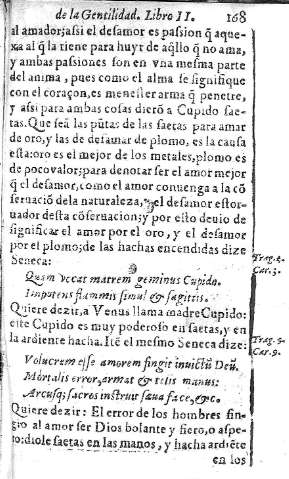 de la Gentilidad. Libro II. 168
al amador; assi el desamor es passion q̃ aque-
xa al q̃ la tiene para huyr de aq̃llo q̃ no ama,
y ambas passiones son en vna mesma parte
del anima, pues como el alma se signifique
con el coraçon, es menester arma q̃ penetre,
y assi para ambas cosas dierõ a Cupido sae-
tas. Que seã las pũtas de las saetas para amar
de oro, y las de desamar de plomo, es la causa
esta: oro es el mejor de los metales, plomo es
de poco valor; para denotar ser el amor mejor
q̃ el desamor, como el amor conuenga a la cõ
seruaciõ de la naturaleza, y el desamor estor-
uador desta cõseruacion; y por esto deuio de
significar el amor por el oro, y el desamor
por el plomo; de las hachas encendidas dize
Seneca:
Trag. 2.
Car. 3.
Quem vocat matrem geminus Cupido.
Impotens flammis simul & sagittis.
Quiere dezir, a Venus llama madre Cupido:
este Cupido es muy poderoso en saetas, y en
la ardiente hacha. Itẽ el mesmo Seneca dize:
Trag. 9.
Car. 9.
Volucrem esse amorem fingit inuictũ Deũ.
Mortalis error, armat & telis manus:
Arcusq; sacros instruit sæua face, &c.
Quiere dezir: El error de los hombres fin-
gio al amor ser Dios bolante y fiero, o aspe-
ro: diole saetas en las manos, y hacha ardiẽte
en los